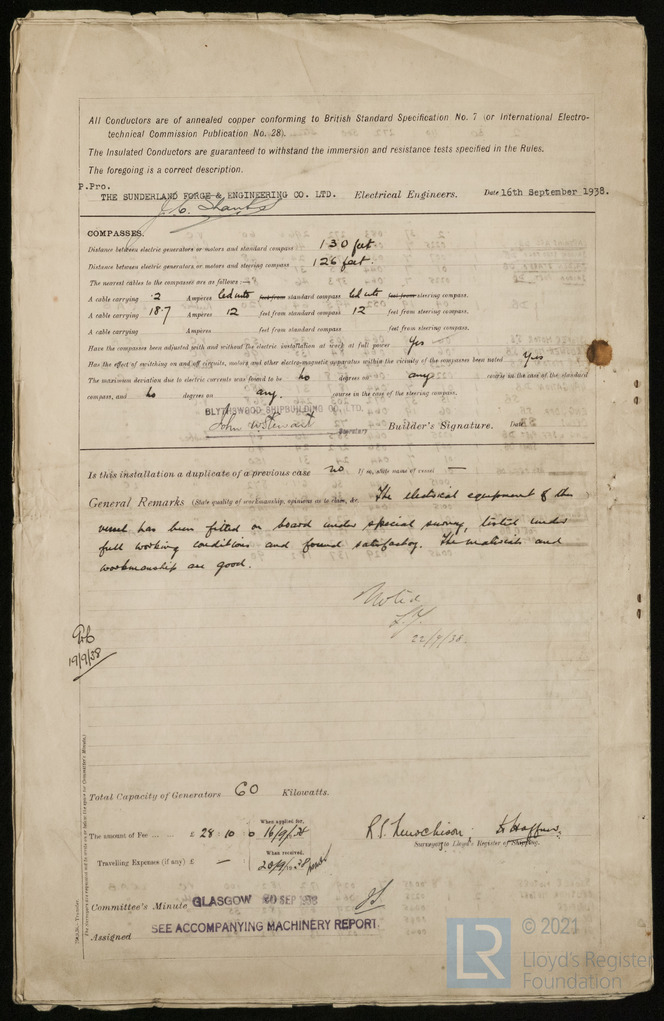 All Conductors are of annealed copper conforming to British Standard Specification No. 7 (or International Electro-
technical Commission Publication No. 28).
The Insulated Conductors are guaranteed to withstand the immersion and resistance tests specified in the Rules.
The foregoing is a correct description.
P.Pro.
THE SUNDERLAND FORGE & ENGINEERING CO. LTD. Electrical Engineers. Date 16th September 1938.
COMPASSES.
Distance between electric generators or motors and standard compass 130 feet
Distance between electric generators or motors and steering compass 126 feet.
The nearest cables to the compasses are as follows:—
A cable carrying .2 Ampères led into feet from standard compass led into feet from steering compass.
A cable carrying 18.7 Ampères 12 feet from standard compass 12 feet from steering compass.
A cable carrying Ampères feet from standard compass feet from steering compass.
Have the compasses been adjusted with and without the electric installation at work at full power Yes
Has the effect of switching on and off circuits, motors and other electro-magnetic apparatus within the vicinity of the compasses been noted Yes
The maximum deviation due to electric currents was found to be no degrees on any course in the case of the standard
compass, and no degrees on any. course in the case of the steering compass.
BLYTHSWOOD SHIPBUILDING CO., LTD.
John W Stewart Secretary Builder's Signature. Date
Is this installation a duplicate of a previous case no If so, state name of vessel —
General Remarks (State quality of workmanship, opinions as to item, &c. The electrical equipment of this
vessel has been fitted on board under special survey, tested under
full working conditions and found satisfactory. The materials and
workmanship are good.
Noted
22/9/38.
19/9/38
Total Capacity of Generators 60 Kilowatts.
The amount of Fee ... ... £ 28 : 10 : 0 When applied for, 16/9/38
Surveyor to Lloyd's Register of Shipping.
Travelling Expenses (if any) £ — When received,
Committee's Minute GLASGOW 20 SEP 1938
Assigned SEE ACCOMPANYING MACHINERY REPORT.
LR © 2021
Lloyd's Register
Foundation